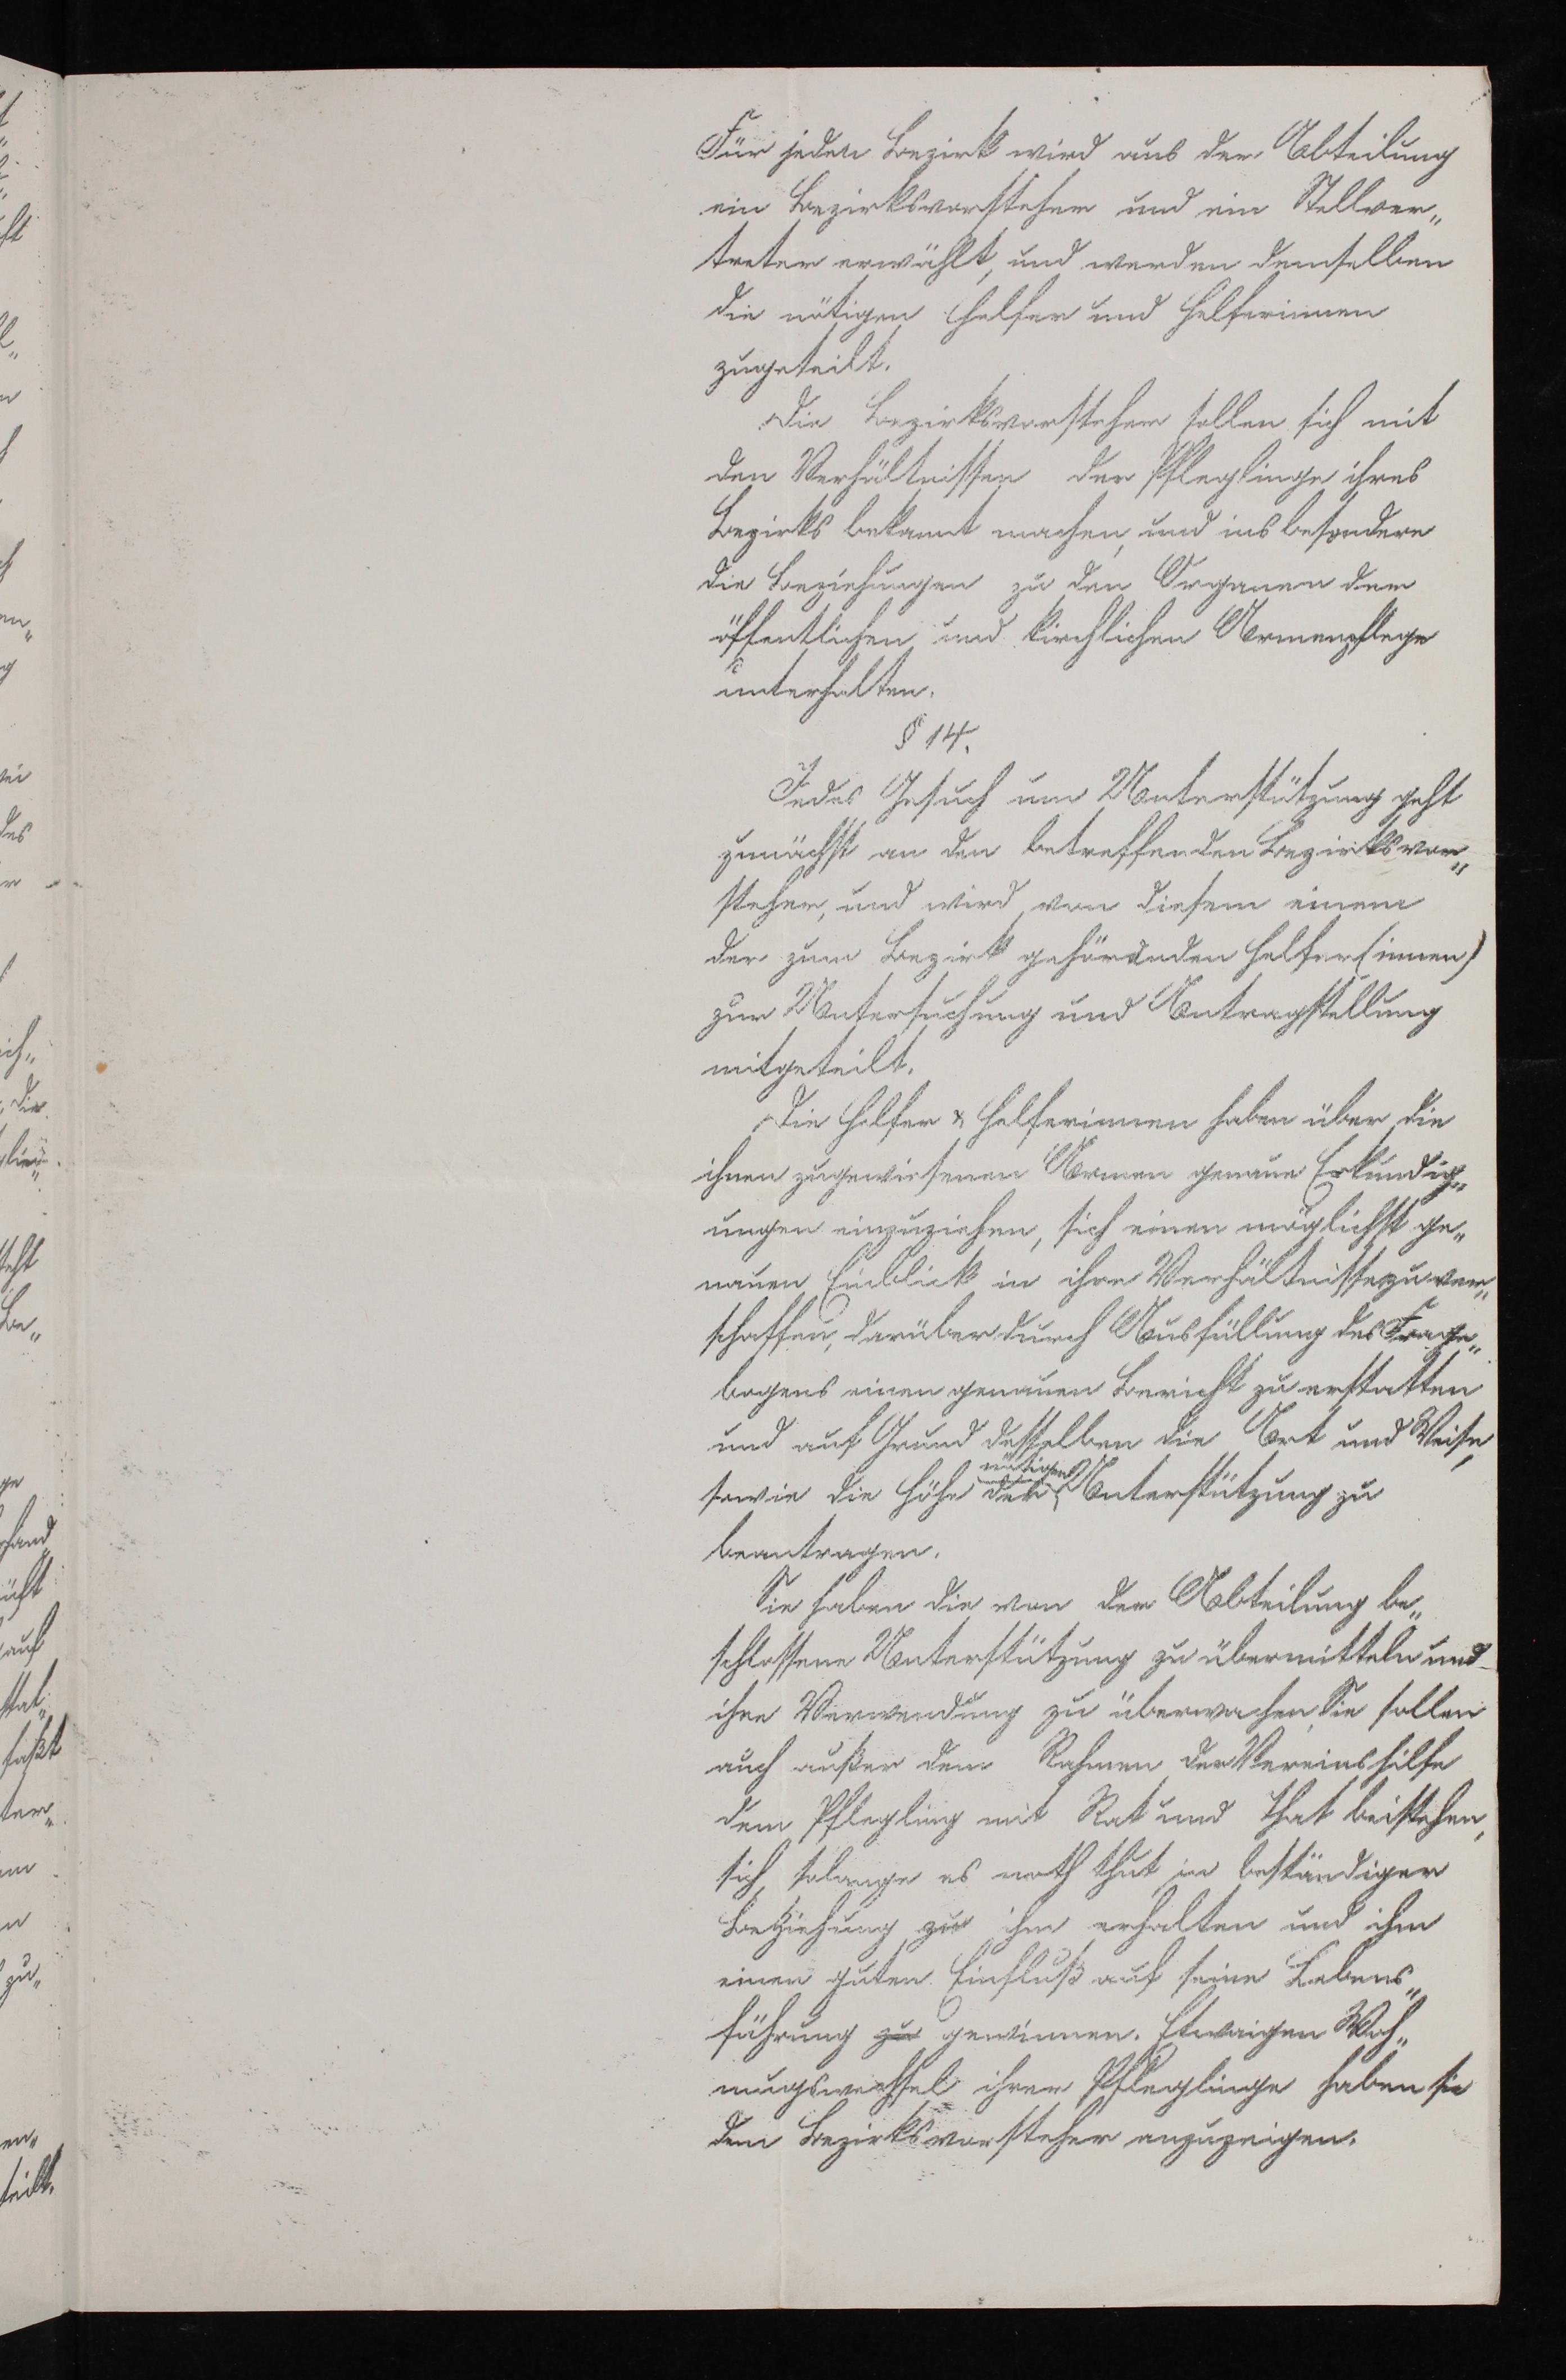 Für jeden Bezirk wird aus der Abteilung
ein Bezirksvorsteher und ein Stellver„
treter erwählt, und werden demselben
die nötigen Helfer und Helferinnen
zugeteilt.
Die Bezirksvorsteher sollen sich mit
den Verhältnissen der Pfleglinge ihres
Bezirks bekannt machen, und insbesondere
die Beziehungen zu den Organen der
öffentlichen und kirchlichen Armenpflege
unterhalten.
§ 14.
Jedes Gesuch um Unterstützung geht
zunächst an den betreffenden Bezirksvor„
steher, und wird von diesem einem
der zum Bezirk gehörenden Helfer(innen)
zur Untersuchung und Antragstellung
mitgeteilt.
Die Helfer & Helferinnen haben über die
ihnen zugewiesenen Armen genaue Erkundig„
ungen einzuziehen, sich einen möglichst ge„
nauen Einblick in ihre Verhältnisse zu ver„
schaffen, darüber durch Ausfüllung des Frage„
bogens einen genauen Bericht zu erstatten
und auf Grund desselben die Art und Weise,
sowie die Höhe der nötigen Unterstützung zu
beantragen.
Sie haben die von der Abteilung be„
schlossene Unterstützung zu übermitteln und
ihre Verwendung zu überwachen. Sie sollen
auch außer dem Rahmen der Vereinshilfe
dem Pflegling mit Rat und That beistehen,
sich, solange es noth thut, in beständiger
Beziehung zu ihm erhalten und ihm
einen guten Einfluß auf seine Lebens„
führung zu gewinnen. Etwaigen Woh„
nungswechsel ihrer Pfleglinge haben sie
dem Bezirksvorsteher anzuzeigen.